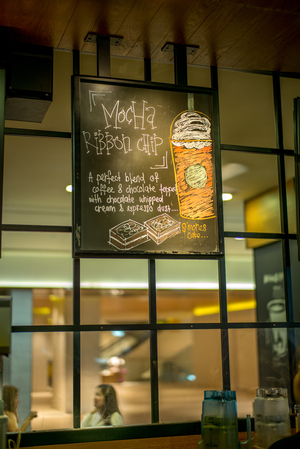 MocHa
RibboN cHip
A perfect blend of
coffee & chocolate topped
with chocolate whipped
cream & espresso dust...